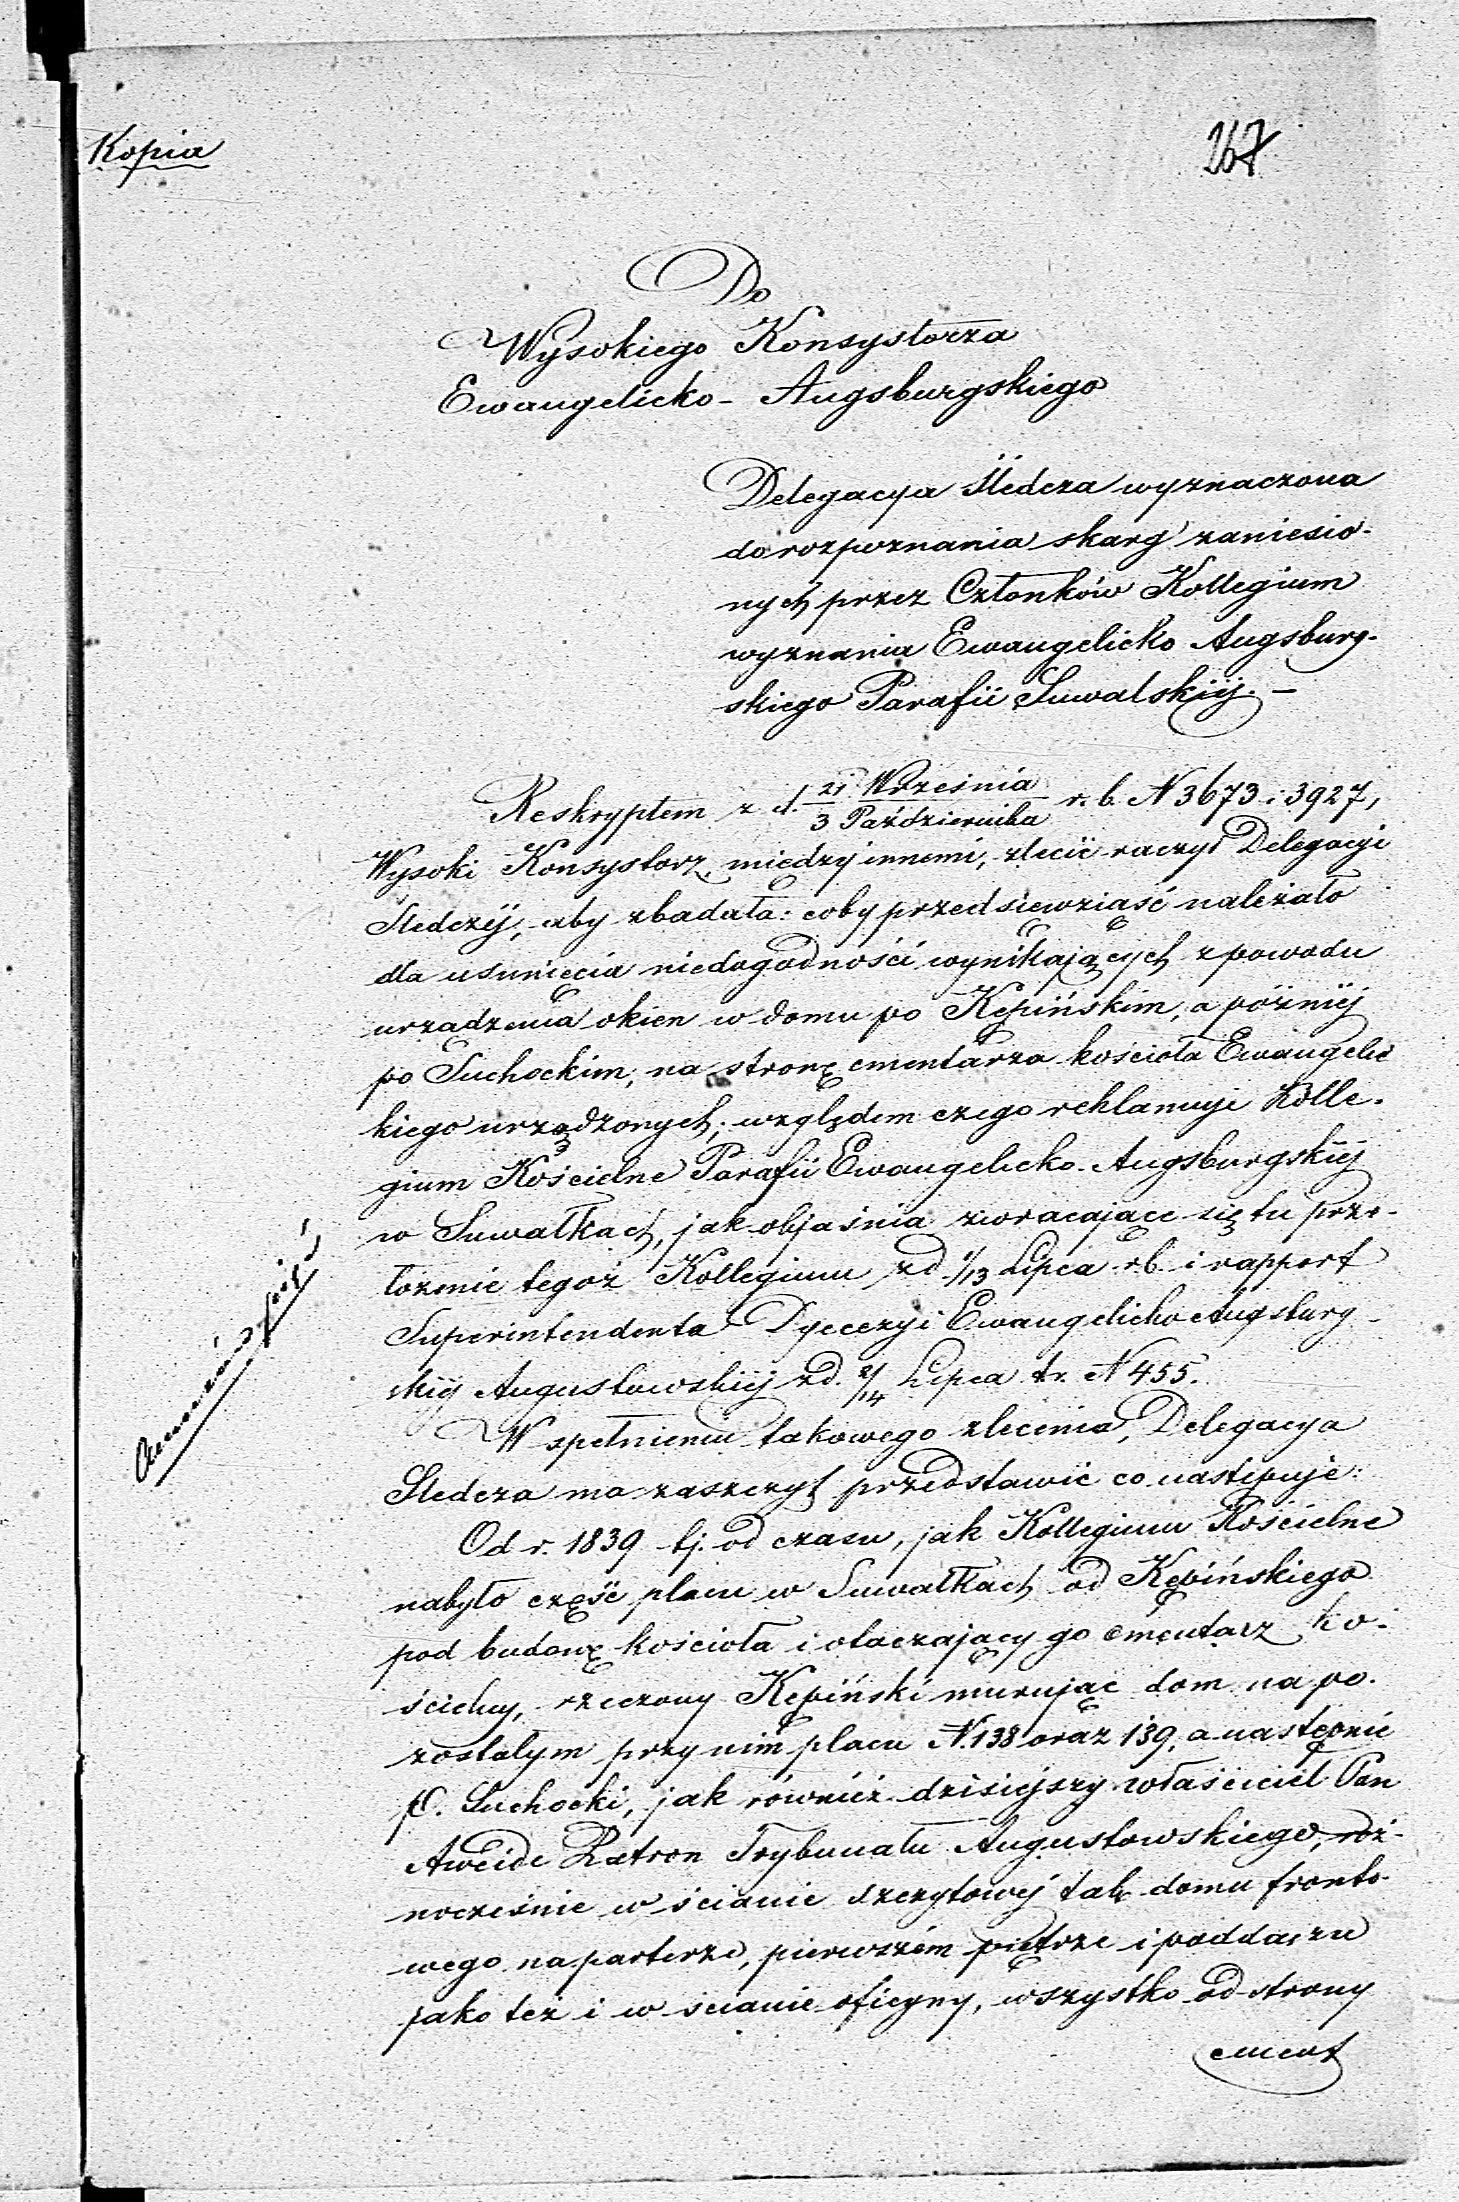 Kopia
267
Do
Wysokiego Konsystorza
Ewangelicko-Augsburgskiego
Delegacya Śledcza wyznaczona
do rozpoznania skarg zaniesio-
nych przez Członków Kollegium
wyznania Ewangelicko Augsburg-
skiego Parafii Suwalskiéj. –
Reskryptem z d. 21 Września / 3 Października r. b. N 3673 i 3927,
Wysoki Konsystorz między innemi, zlecić raczył Delegacyi
Śledczéj, aby zbadała: coby przedsiewziąść należało
dla usunięcia niedogodności wynikających z powodu
urządzenia okien w domu po Kępińskim, a późniéj
po Suchockim, na stronę cmentarza kościoła Ewangelic
kiego urządzonych; względem czego reklamuje Kolle-
gium Kościelne Parafii Ewangelicko-Augsburgskiéj
w Suwałkach, jak objaśnia zwracające się tu prze-
łożenie tegoż Kollegium z d 1/13 Lipca r. b. i rapport
Superintendenta Dyecezyi Ewangelicko Augsburg-
skiéj Augustowskiéj z d. 2/14 Lipca t. r. N 455.
W spełnieniu takowego zlecenia, Delegacya
Śledcza ma zaszczyt przedstawić co następuje:
Od r. 1839 tj. od czasu, jak Kollegium Kościelne
nabyło część placu w Suwałkach od Kępińskiego
pod budowę kościoła i otaczający go cmentarz ko-
ścielny, rzeczony Kępiński murując dom na po-
zostałym przy nim placu N. 138 oraz 139, a następnie
P. Suchocki, jak również dzisiejszy właściciel Pan
Aweide Patron Trybunału Augustowskiego, róż-
nocześnie w ścianie szczytowéj tak domu fronto-
wego na parterze, pierwszém piętrze i poddaszu
jako też i w ścianie oficyny, wszystko od strony
cment